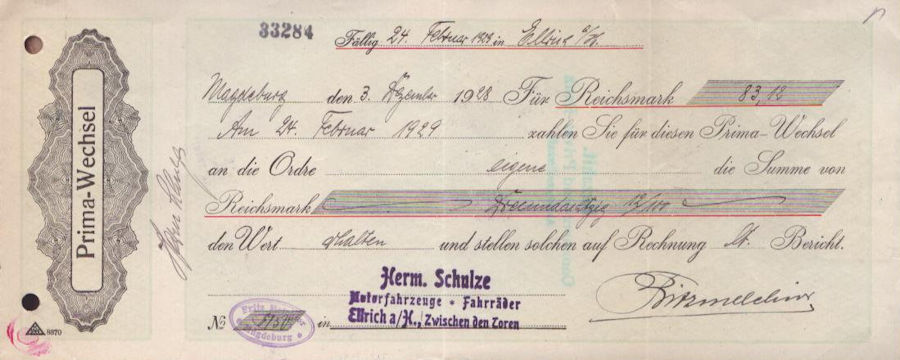 33284
Fällig 24. Februar 1929 in Ellrich a/H.
Prima-Wechsel
Magdeburg den 3. Dezember 1928 Für Reichsmark 83,12
Am 24. Februar 1929 zahlen Sie für diesen Prima-Wechsel
an die Ordre eigene die Summe von
Reichsmark Dreiundachtzig 12/100
den Wert erhalten und stellen solchen auf Rechnung lt. Bericht.
Herm. Schulze
Motorfahrzeuge * Fahrräder
Ellrich a/H., Zwischen den Toren
№ in
Fritz
Magdeburg
8870